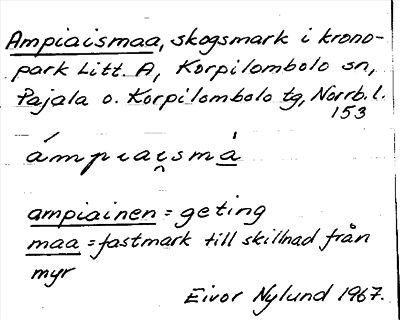 Ampiaismaa, skogsmark i krono-
park Litt. A, Korpilombolo sn,
Pajala o. Korpilombolo tg, Norrb. l.
153
ámpiai̯smá̱
ampiainen = geting
maa = fastmark till skillnad från
myr
Eivor Nylund 1967.